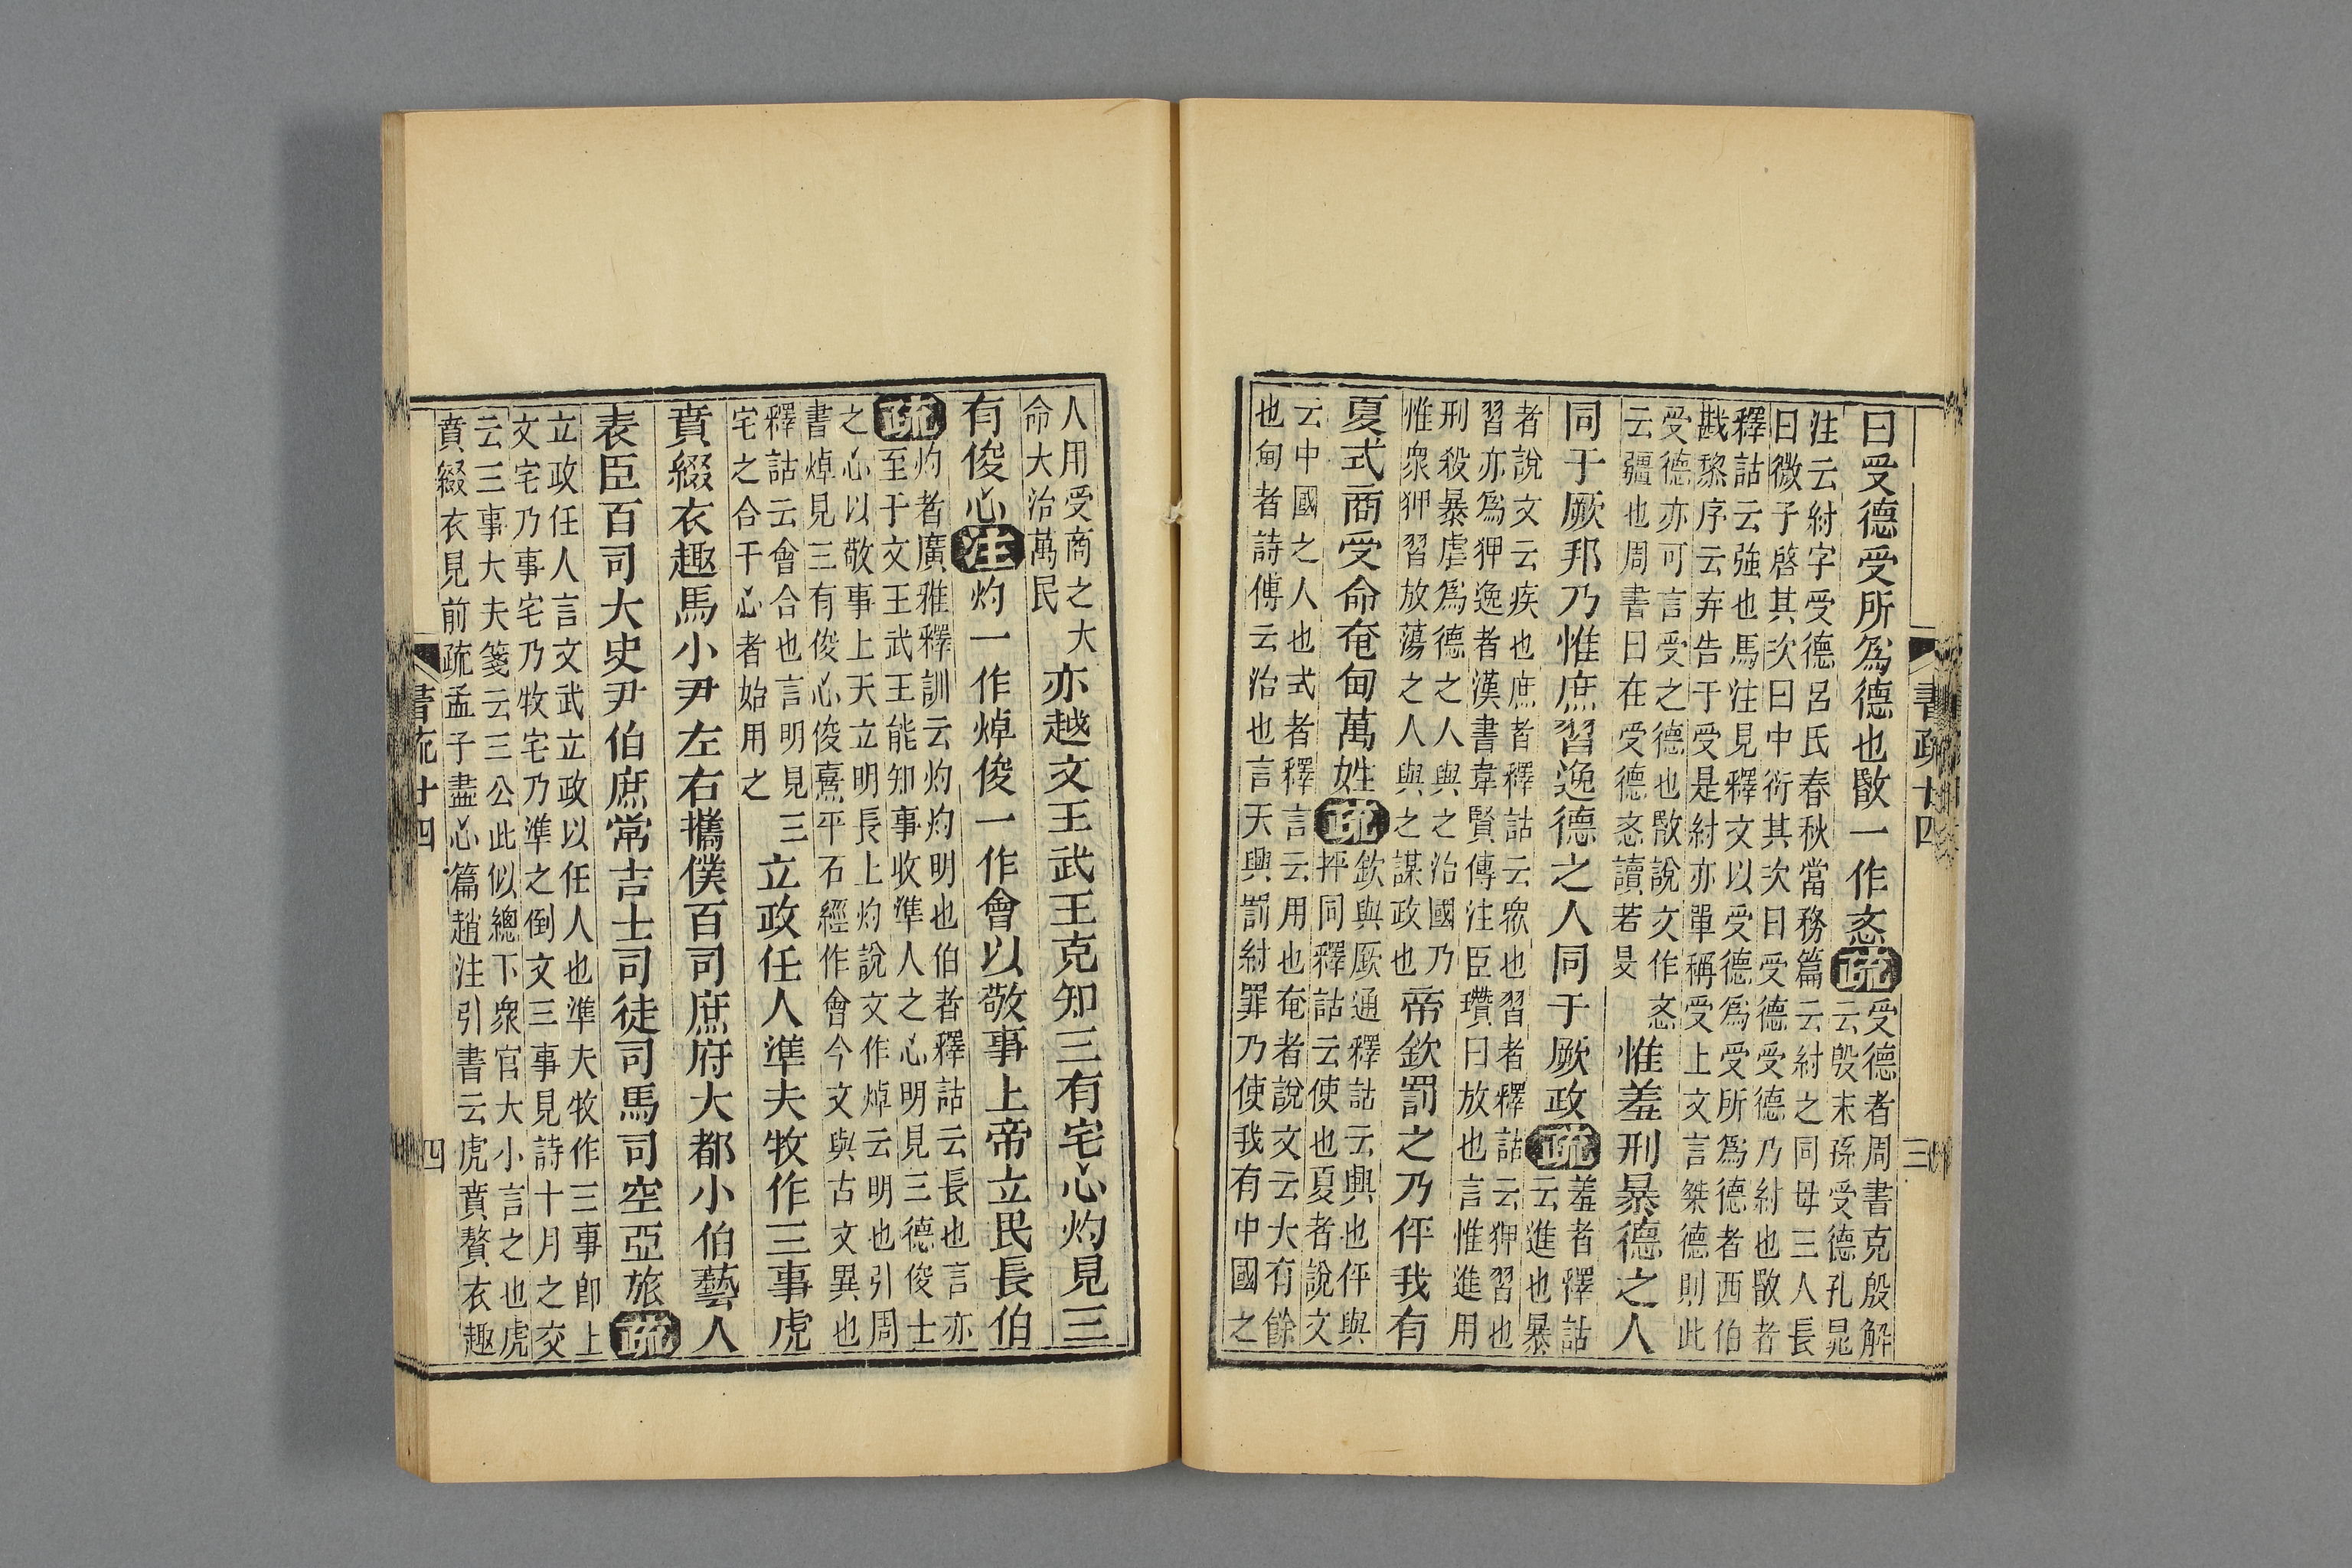 書疏十四 三
曰受德受所爲德也敯一作忞疏
受德者周書克殷解
云殷末孫受德孔晁
注云紂字受德呂氏春秋當務篇云紂之同母三人長
曰微子啓其次曰中衍其次曰受德受德乃紂也敯者
釋詁云強也馬注見釋文以受德爲受所爲德者西伯
戡黎序云奔告于受是紂亦單稱受上文言桀德則此
受德亦可言受之德也敯說文作忞
云疆也周書曰在受德忞讀若旻
惟羞刑暴德之人
同于厥邦乃惟庶習逸德之人同于厥政疏
羞者釋詁
云進也暴
者說文云疾也庶者釋詁云衆也習者釋詁云狎習也
習亦爲狎逸者漢書韋賢傳注臣瓚曰放也言惟進用
刑殺暴虐爲德之人與之治國乃
惟衆狎習放蕩之人與之謀政也
帝欽罰之乃伻我有
夏式商受命奄甸萬姓疏
欽與厥通釋詁云興也伻與
抨同釋詁云使也夏者說文
云中國之人也式者釋言云用也奄者說文云大有餘
也甸者詩傳云治也言天興罰紂罪乃使我有中國之
人用受商之大
命大治萬民
亦越文王武王克知三有宅心灼見三
有俊心注灼一作焯俊一作會以敬事上帝立民長伯
疏
灼者廣雅釋訓云灼灼明也伯者釋詁云長也言亦
至于文王武王能知事收準人之心明見三德俊士
之心以敬事上天立明長上灼說文作焯云明也引周
書焯見三有俊心俊熹平石經作會今文與古文異也
釋詁云會合也言明見三
宅之合于心者始用之
立政任人準夫牧作三事虎
賁綴衣趣馬小尹左右攜僕百司庶府大都小伯藝人
表臣百司大史尹伯庶常吉士司徒司馬司空亞旅疏
立政任人言文武立政以任人也準夫牧作三事卽上
文宅乃事宅乃牧宅乃準之倒文三事見詩十月之交
云三事大夫箋云三公此似總下衆官大小言之也虎
賁綴衣見前疏孟子盡心篇趙注引書云虎賁贅衣趣
書疏十四 四